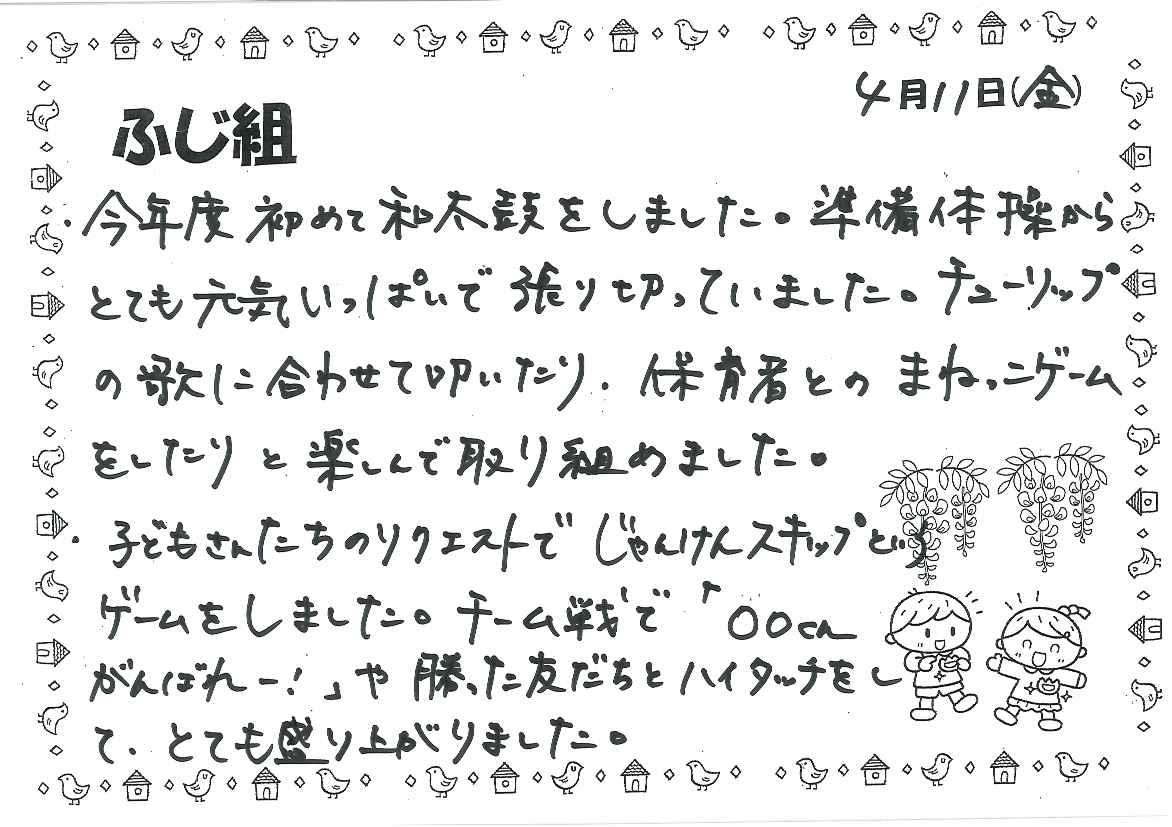 4月11日(金)
ふじ組
・今年度初めて和太鼓をしました。準備体操から
とても元気いっぱいで張り切っていました。チューリップ
の歌に合わせて叩いたり、保育者とのまねっこゲーム
をしたりと楽しんで取り組めました。
・子どもさんたちのリクエストでじゃんけんスキップという
ゲームをしました。チーム戦で「〇〇くん
がんばれー!」や勝った友だちとハイタッチをし
て、とても盛り上がりました。